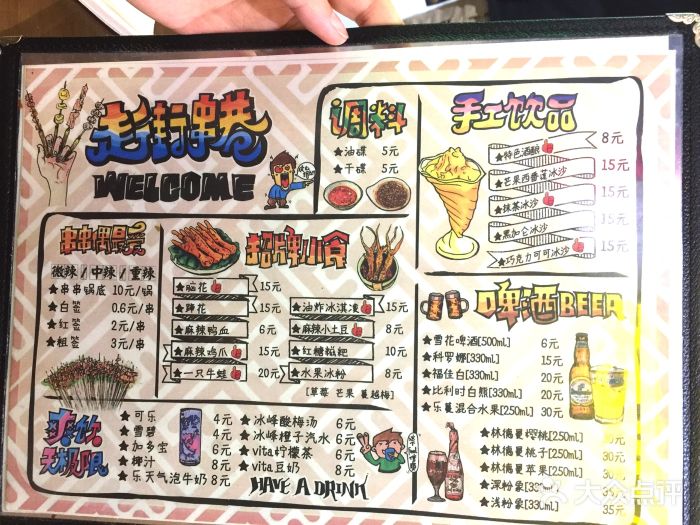 走街串巷
WELCOME
调料
★油碟 5元
★干碟 5元
手工饮品
★特色酒酿 8元
★芒果西番莲冰沙 15元
★抹茶冰沙 15元
★黑加仑冰沙 15元
★巧克力可可冰沙 15元
微辣/中辣/重辣
★串串锅底 10元/锅
★白签 0.6元/串
★红签 2元/串
★粗签 3元/串
招牌小食
★脑花 15元
★蹄花 15元
★麻辣鸭血 6元
★麻辣鸡爪 15元
★一只牛蛙 20元
★油炸冰淇凌 15元
★麻辣小土豆 8元
★红糖糍粑 10元
★水果冰粉 8元
[草莓 芒果 蔓越梅]
啤酒BEER
★雪花啤酒[500ml] 6元
★科罗娜[330ml] 15元
★福佳白[330ml] 20元
★比利时白熊[330ml] 20元
★乐蔓混合水果[250ml] 30元
★林德曼樱桃[250ml]
★林德曼桃子[250ml] 30元
★林德曼苹果[250ml] 30元
★深粉象[330ml]
★浅粉象[330ml] 35元
爽饮无极限
★可乐 4元
★雪碧 4元
★加多宝 6元
★椰汁 8元
★乐天气泡牛奶 8元
★冰峰酸梅汤 6元
★冰峰橙子汽水 6元
★vita柠檬茶 6元
★vita豆奶 8元
HAVE A DRINK
大众点评